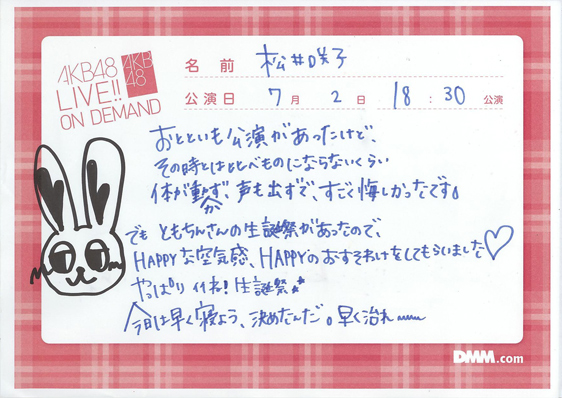 AKB48
LIVE!!
ON DEMAND
AKB
48
名前 松井咲子
公演日 7月2日 18:30公演
おとといも公演があったけど、
その時とはヒヒべものにならないくらい
体が動かず、声も出ずで、すごく悔しかったです。
でも ともちんさんの生誕祭があったので、
HAPPYな空気感、HAPPYのおすそわけをしてもらいました♡
やっぱり イイね!生誕祭☆
今日は早く寝よう、決めたんだ。早く治れ〜
DMM.com